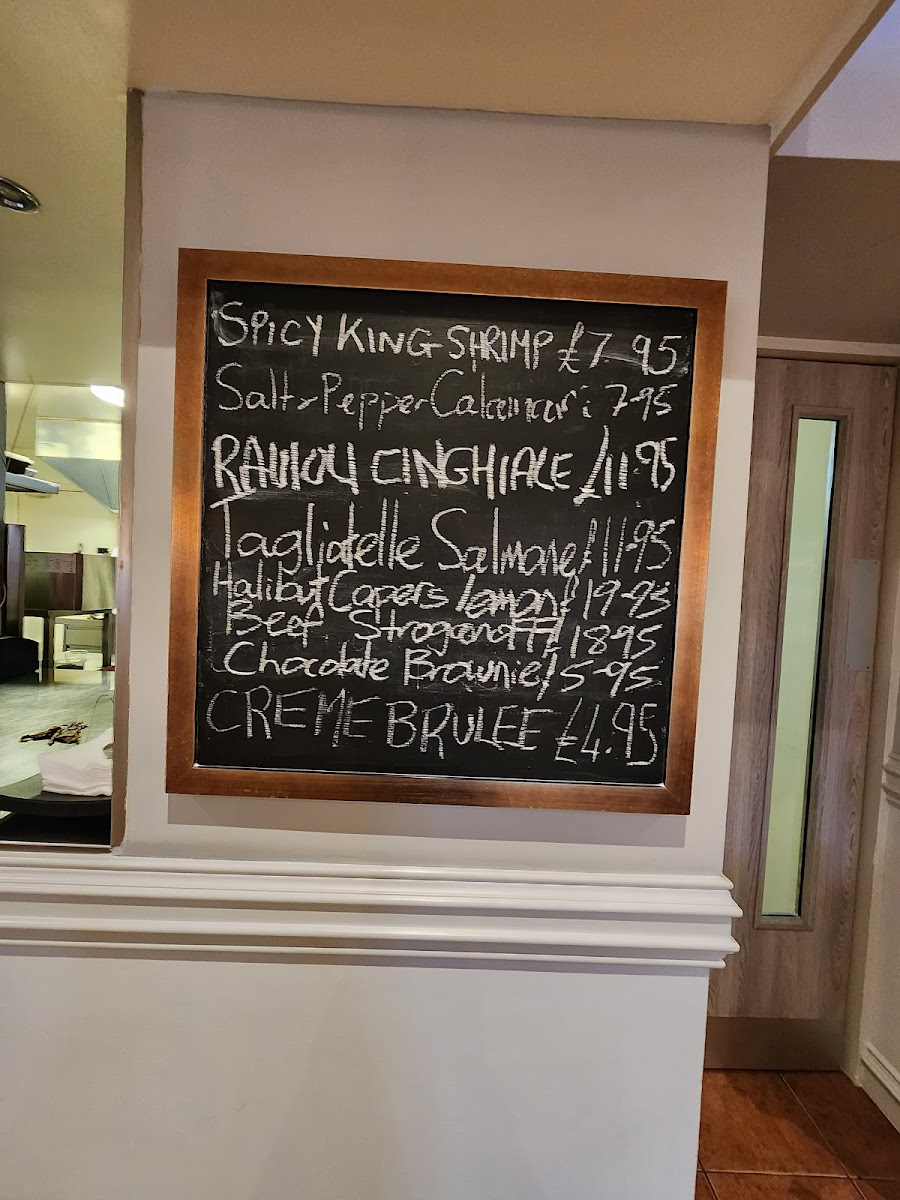 SPICY KING SHRIMP £7.95
Salt & Pepper Calamari 7-95
RAVIOLI CINGHIALE £11.95
Tagliatelle Salmone £11-95
Halibut Capers lemon £19-95
Beef Stroganoff £1895
Chocolate Brownie £5-95
CREME BRULEE £4.95